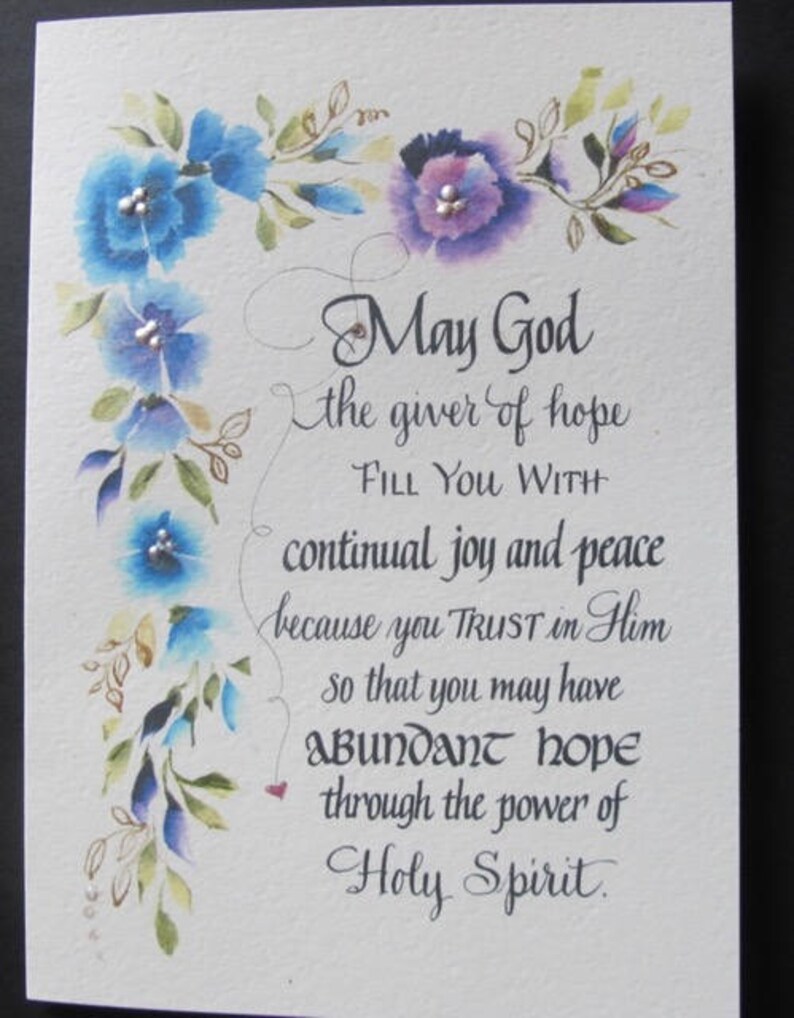 May God
the giver of hope
FILL YOU WITH
continual joy and peace
because you TRUST in Him
so that you may have
ABUNDANT HOPE
through the power of
Holy Spirit.